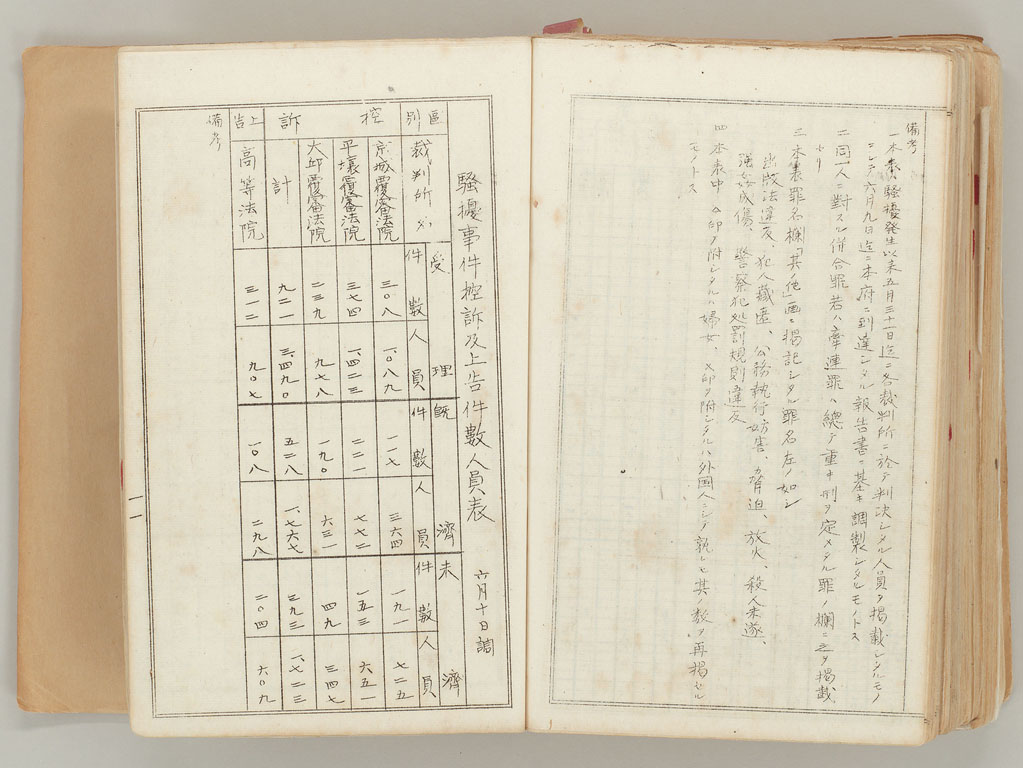 備考
一本表ハ騒擾発生以来五月三十一日迄ニ各裁判所ニ於テ判決シタル人員ヲ掲載シタルモノ
ニシテ六月九日迄ニ本府ニ到達シタル報告書ニ基キ調製シタルモノトス
二同一人ニ対スル併合罪若ハ牽連罪ハ総テ重キ刑ヲ定メタル罪ノ欄ニ之ヲ掲載
セリ
三本表罪名欄「其ノ他」画ニ掲記シタル罪名左ノ如シ
出版法違反、犯人蔵匿、公務執行妨害、脅迫、放火、殺人未遂、
強姦致傷、警察犯処罰規則違反
四本表中 印ヲ附シタルハ婦女 印ヲ附シタルハ外国人ニシテ孰レモ其ノ数ヲ再掲セル
モノトス
騒擾事件控訴及上告件數人員表 六月十日調
區別 裁判所 受理 既濟 未濟
件數 人員 件數 人員 件數 人員
控訴
京城覆審法院 三〇八 一、〇八九 一一七 三六四 一九一 七二五
平壤覆審法院 三七四 一、四二三 二二一 七七二 一五三 六五一
大邱覆審法院 二三九 九七八 一九〇 六三一 四九 三四七
計 九二一 三、四九〇 五二八 一、七六七 三九三 一、七二三
上告 高等法院 三一二 九〇七 一〇八 二九八 二〇四 六〇九
備考
一一